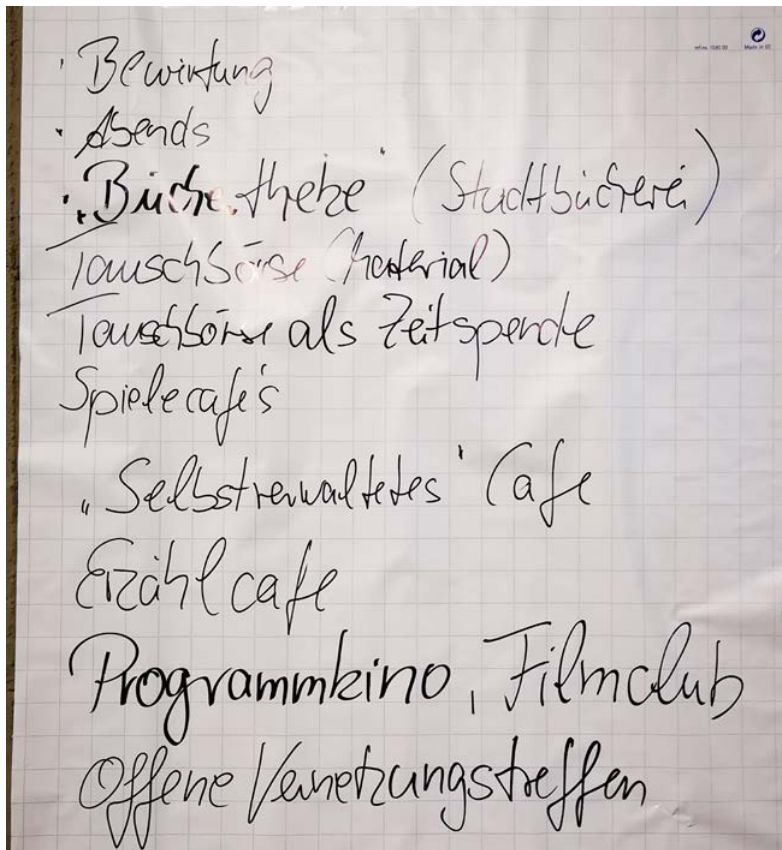 · Bewirtung
· Abends
· „Büchertheke" (Stadtbücherei)
Tauschbörse (Material)
Tauschbörse als Zeitspende
Spielecafé's
„Selbstverwaltetes" Cafe
Erzählcafe
Programmkino, Filmclub
Offene Vernetzungstreffen
Made in EC